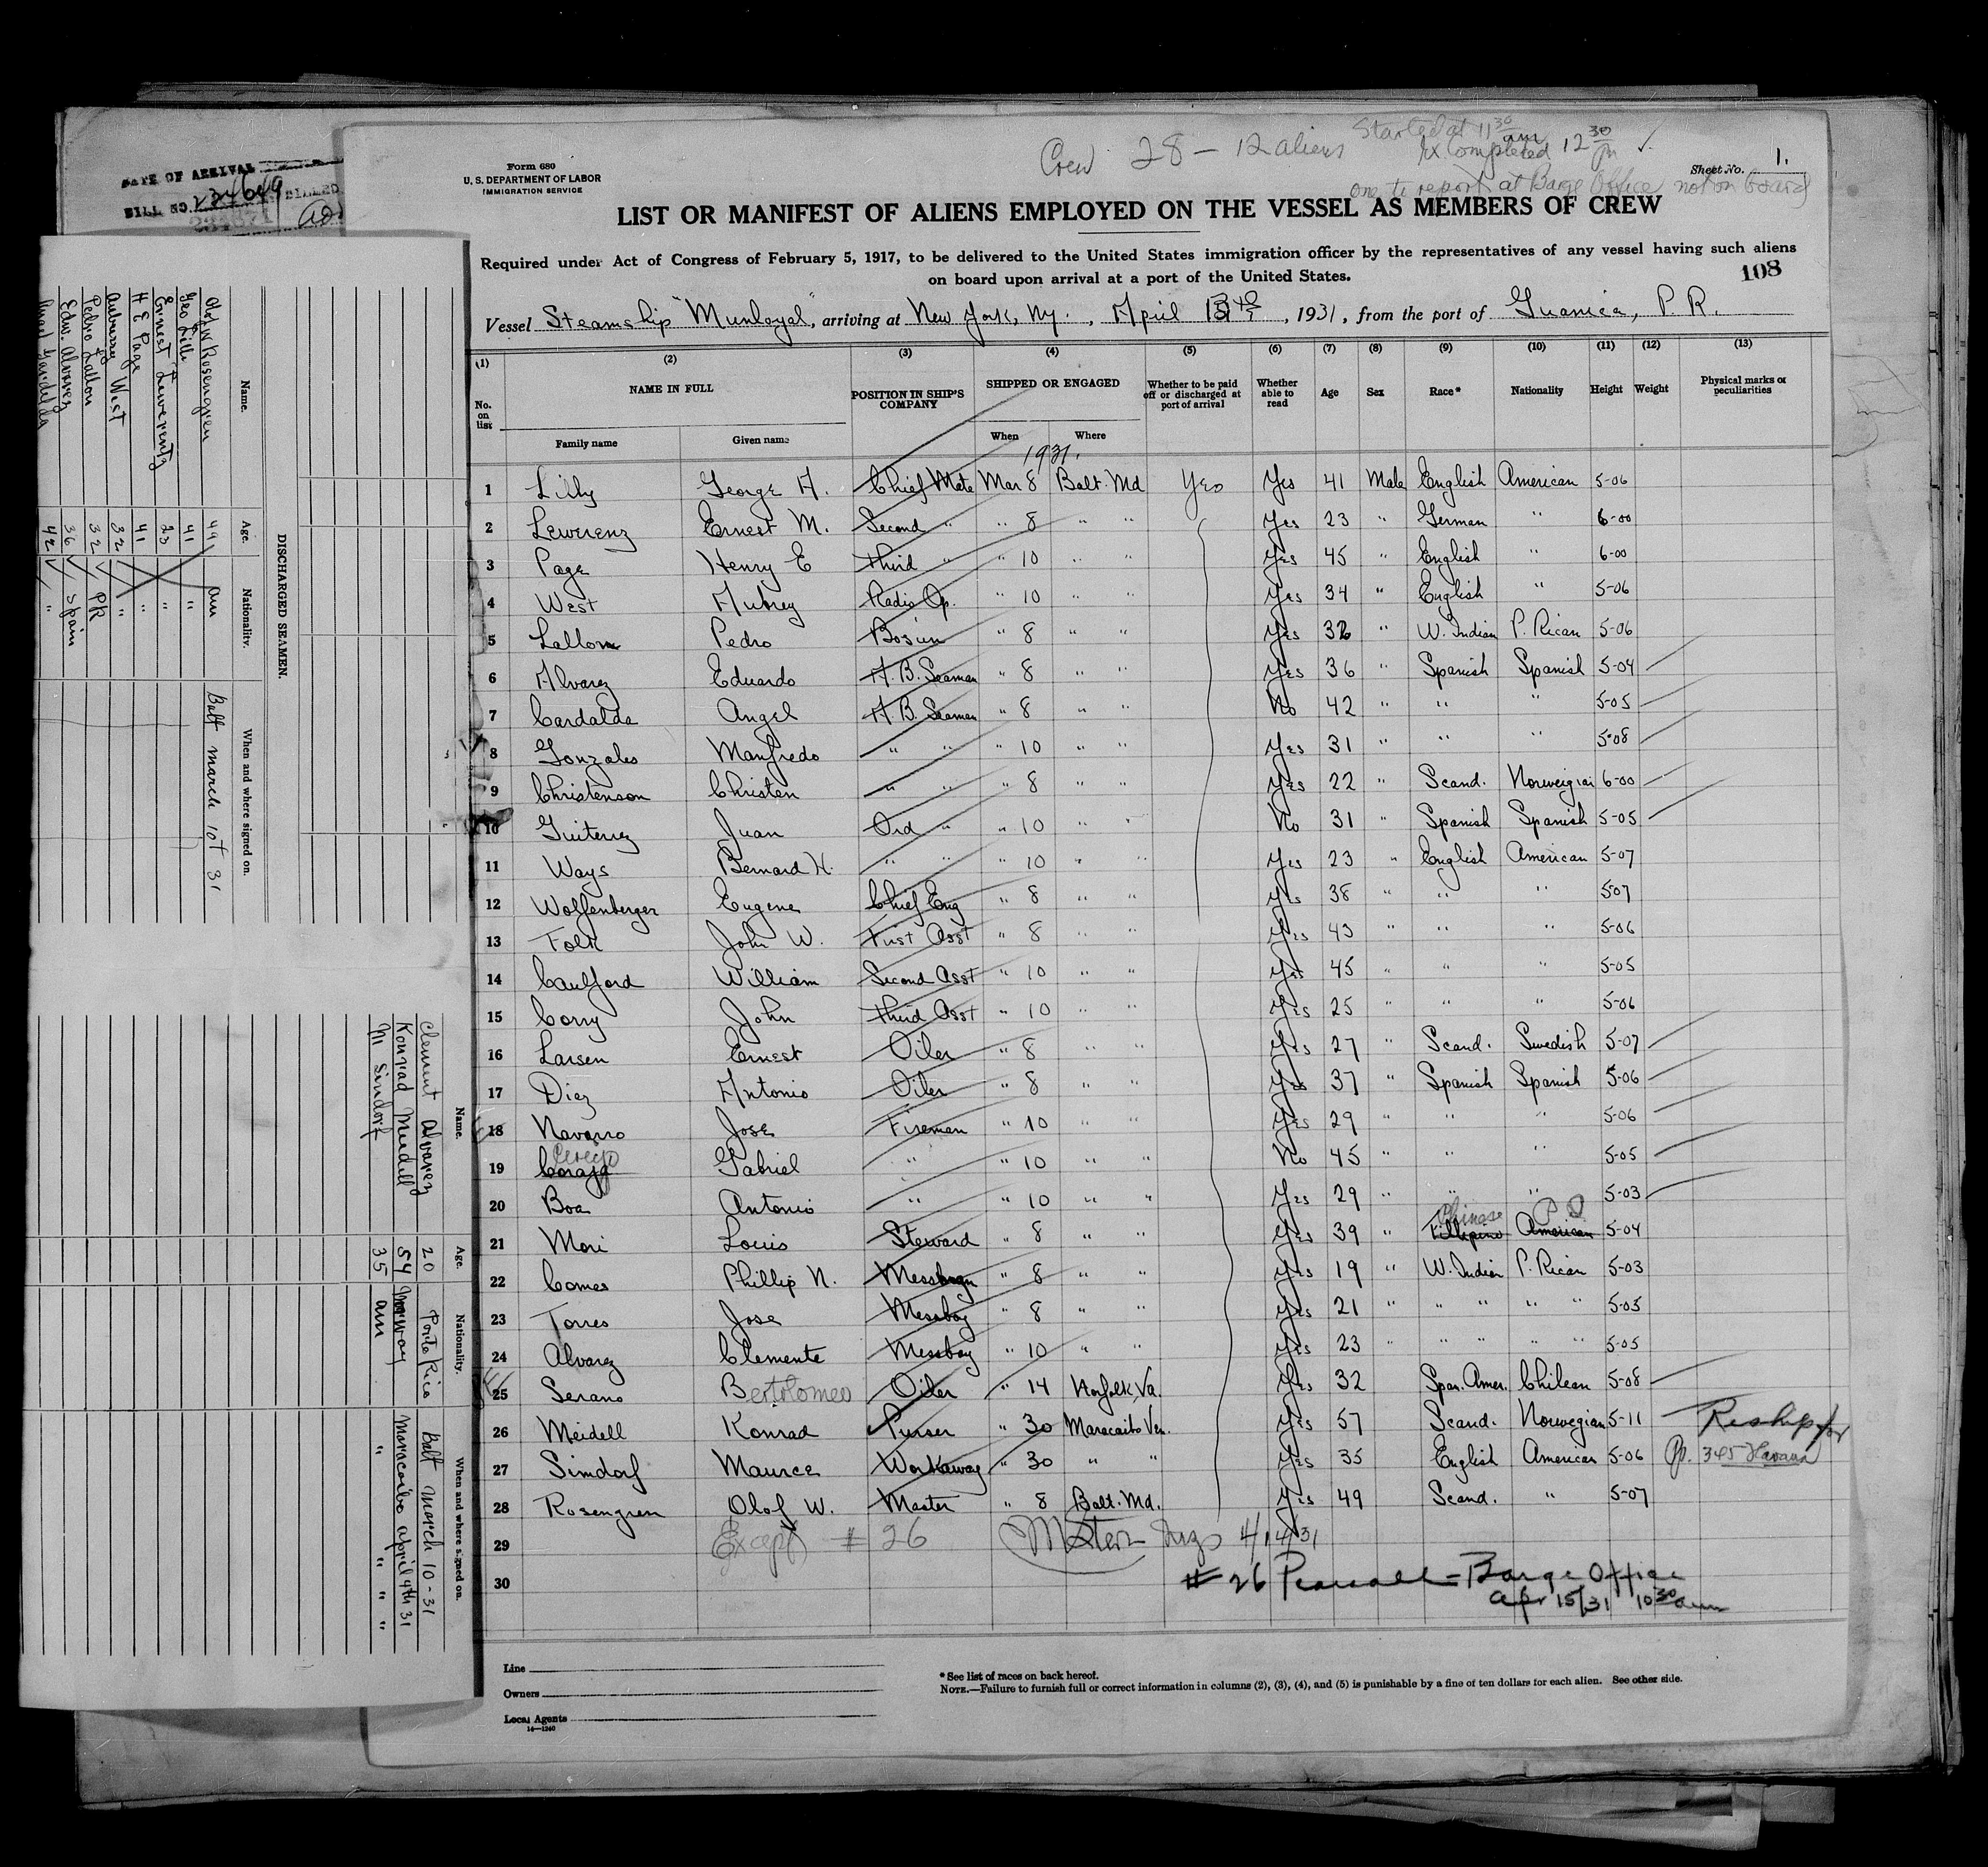 DATE OF ARRIVAL
BILL NO. 234649 BILLED
Form 680
U. S. DEPARTMENT OF LABOR
IMMIGRATION SERVICE
Crew 28 - 12 aliens Started at 11 30 am
Completed 12 30 pm
Sheet No. 1.
one to report at Barge Office not on board
LIST OR MANIFEST OF ALIENS EMPLOYED ON THE VESSEL AS MEMBERS OF CREW
Required under Act of Congress of February 5, 1917, to be delivered to the United States immigration officer by the representatives of any vessel having such aliens
on board upon arrival at a port of the United States.
108
Vessel Steamship "Munloyal", arriving at New York, Ny., April 13th, 1931, from the port of Guanica, P. R.
(1) (2) (3) (4) (5) (6) (7) (8) (9) (10) (11) (12) (13)
No. on list NAME IN FULL POSITION IN SHIP'S COMPANY SHIPPED OR ENGAGED Whether to be paid off or discharged at port of arrival Whether able to read Age Sex Race* Nationality Height Weight Physical marks or peculiarities
Family name Given name When Where
1931.
1 Lilly George A. Chief Mate Mar 8 Balt. Md Yes Yes 41 Male English American 5-06
2 Lewerenz Ernest M. Second " " 8 " " Yes 23 " German " 6-00
3 Page Henry E Third " " 10 " " Yes 45 " English " 6-00
4 West Aubrey Radio Op. " 10 " " Yes 34 " English " 5-06
5 Lallom Pedro Bosun " 8 " " Yes 32 " W. Indian P. Rican 5-06
6 Alvarez Eduardo A. B. Seaman " 8 " " Yes 36 " Spanish Spanish 5-04
7 Cardalda Angel A B. Seaman " 8 " " No 42 " " " 5-05
8 Gonzales Manfredo " " " 10 " " Yes 31 " " " 5-08
9 Christenson Christen " " " 8 " " Yes 22 " Scand. Norweigian 6-00
10 Guiterrez Juan Ord " " 10 " " No 31 " Spanish Spanish 5-05
11 Ways Bernard H. " " " 10 " " Yes 23 " English American 5-07
12 Wolfenberger Eugene Chief Eng " 8 " " Yes 38 " " " 5-07
13 Folk John W. First Asst " 8 " " Yes 43 " " " 5-06
14 Caulford William Second Asst " 10 " " Yes 45 " " " 5-05
15 Corry John Third Asst " 10 " " Yes 25 " " " 5-06
16 Larsen Ernest Oiler " 8 " " Yes 27 " Scand. Swedish 5-07
17 Diez Antonio Oiler " 8 " " Yes 37 " Spanish Spanish 5-06
18 Navarro Jose Fireman " 10 " " Yes 29 " " " 5-06
19 Gabriel " " 10 " " No 45 " " " 5-05
20 Boa Antonio " " 10 " " Yes 29 " " " 5-03
Chinese
21 Mori Louis Steward " 8 " " Yes 39 " Fillipino American 5-04
22 Comes Phillip N. Messman " 8 " " Yes 19 " W. Indian P. Rican 5-03
23 Torres Jose Messboy " 8 " " Yes 21 " " " " " 5-05
24 Alvarez Clemente Messboy " 10 " " Yes 23 " " " " 5-05
25 Serano Bertolomeo Oiler " 14 Norfolk, Va. Yes 32 Span. Amer. Chilean 5-08
26 Meidell Konrad Purser " 30 Maracaibo Ven. Yes 57 Scand. Norwegian 5-11 Reship for
27 Simdorf Maurice Workaway " 30 " " Yes 35 English American 5-06 345 Havana
28 Rosengren Olof W. Master " 8 Balt. Md. Yes 49 Scand. " 5-07
29 Except # 26 4/14/31
30 # 26 Barge Office
Apr 15/31 10 30 am
Line
Owners
Local Agents
14-1240
*See list of races on back hereof.
NOTE.—Failure to furnish full or correct information in columns (2), (3), (4), and (5) is punishable by a fine of ten dollars for each alien. See other side.
DISCHARGED SEAMEN.
Name. Age. Nationality. When and where signed on.
Olof W Rosengren 49 am Balt march 10t 31
Geo Lilli 41 "
Ernest Lewerentz 23 "
H E Page 41 "
Aubrey West 32 "
Pedro Lallon 32 PR
Edw. Alvarez 36 Spain
42 "
Name. Age. Nationality. When and where signed on.
Clement Alvarez 20 Porto Rico Balt March 10-31
Konrad Meidell 54 Norway Maracaibo april 9th 31
M Simdorf 35 am " " " "